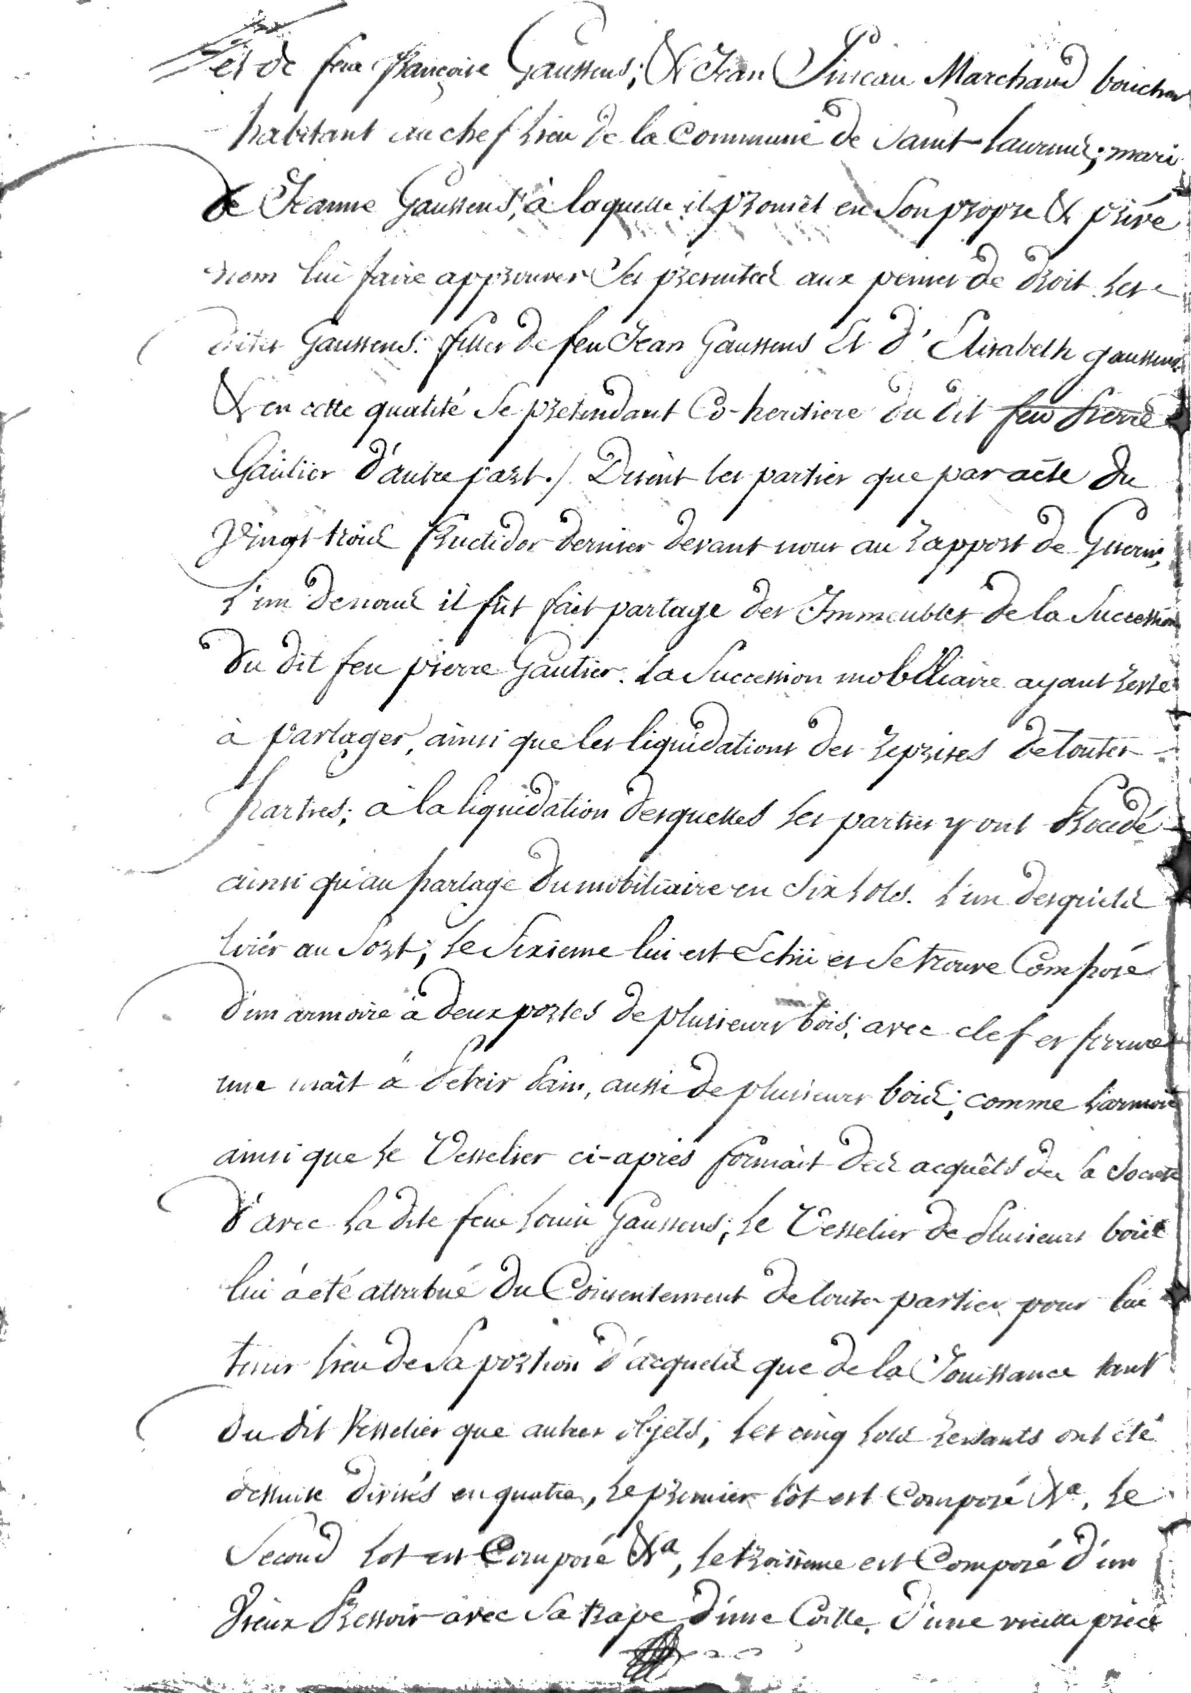 et de feue françoise Gaussens; & Jean Pineau Marchand boucher
habitant au chef lieu de la Commune de Saint-laurend; mari
de Jeanne Gaussens, à laquelle il promèt en Son propre & privé
nom lui faire approuver Ses presented aux peines de droit. les
dites Gaussens. filles de feu Jean Gaussens Et d'Elisabeth gaussens
& en cette qualité Se pretendant Co-heritiere du dit feu Pierre
Gautier d'autre part./ Disent les parties que par acte du
Vingt troid fructidor dernier devant nous au rapport de Guerin,
l'un denoud il fût fait partage des Immeubles de la Succession
du dit feu pierre Gautier. la Succession mobilliaire ayant resté
à partager, ainsi que les liquidations des reprises de toutes
partes; à la liquidation desquelles les parties y ont Procédé
ainsi qu'au partage du mobiliaire en Six lots. l'un desqueld
tirés au Sort; le Sixieme lui est Echü et Se trouve Composé
d'un armoire à deux portes de plusieurs bois; avec clef et ferrure
une maît à Petrir Pain, aussi de plusieurs boid; comme l'armoire
ainsi que le Vesselier ci-après formait ded acquêts de la Societé
d'avec la dite feue Louise Gaussens; le Vesselier de Plusieurs boid
lui à été attribué du Consentement de toutes parties pour lui
tenir lieu de Sa portion d'acquetd que de la Jouissance tant
du dit Vesselier que autres objets; les cinq lotd restants ont été
dessuite divisés en quatre, le premier lôt est Composé &a. le
Second lot est Composé &a, le troisième est Composé d'un
Vieux Pressoir avec Sa trape d'une Coitte, d'une vieille piéce